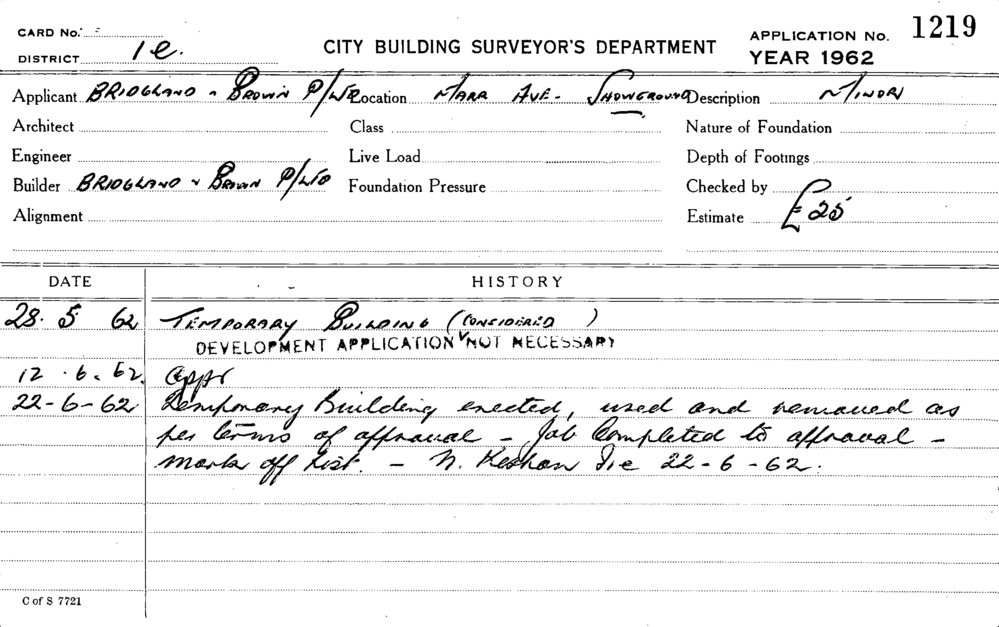 CARD No.
DISTRICT 1e.
CITY BUILDING SURVEYOR'S DEPARTMENT
APPLICATION No. 1219
YEAR 1962
Applicant BRIDGLAND & BROWN P/LTD Location MARR AVE. SHOWGROUND Description MINOR
Architect Class Nature of Foundation
Engineer Live Load Depth of Footings
Builder BRIDGLAND & BROWN P/LTD Foundation Pressure Checked by
Alignment Estimate £25
DATE HISTORY
28. 5 62 TEMPORARY BUILDING (CONSIDERED )
DEVELOPMENT APPLICATION NOT NECESSARY
12 . 6. 62. Appr
22-6-62 Temporary Building erected, used and removed as
per terms of approval - Job Completed to approval -
mark off list. - N. 22-6-62.
C of S 7721